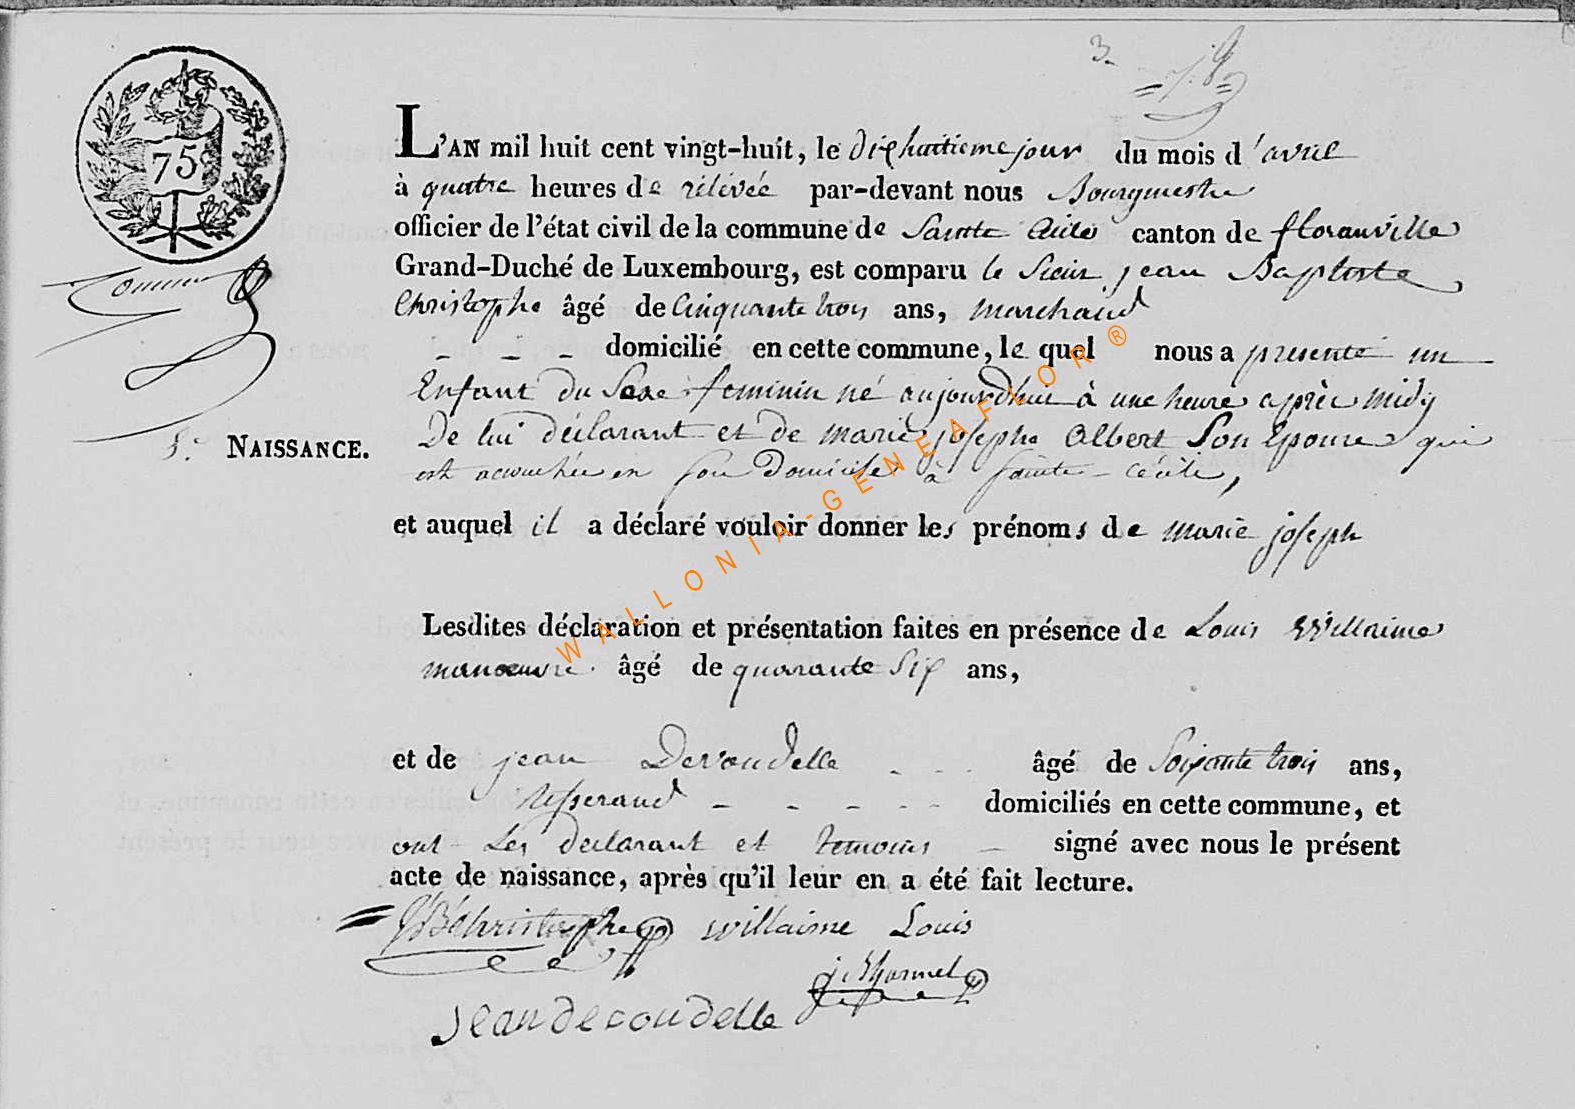 3.
75
L'AN mil huit cent vingt-huit, le dixhuitieme jour du mois d'avril
à quatre heures de rélévée par-devant nous Bourgmestre
officier de l'état civil de la commune de Sainte Cécile canton de floranville
Grand-Duché de Luxembourg, est comparu le Sieur jean Baptiste
Christophe âgé de Cinquante trois ans, marchand
- - - domicilié en cette commune, le quel nous a présenté un
Enfant du Sexe feminin né aujourdhui à une heure après midy
De lui déclarant et de marie josephe Albert Son Epouse qui
est accouchée en son Domicile à sainte-cécile,
5.e NAISSANCE.
et auquel il a déclaré vouloir donner les prénoms de marie joseph
Lesdites déclaration et présentation faites en présence de Louis Willaime
manoeuvre âgé de quarante Six ans,
et de jean Devoudelle - - - âgé de Soixante trois ans,
tisserand - - - - - domiciliés en cette commune, et
ont Les declarant et temoins - signé avec nous le présent
acte de naissance, après qu'il leur en a été fait lecture.
JB Christophe Willaime Louis
jean decoudelle
WALLONIA-GENEAFLOR ®